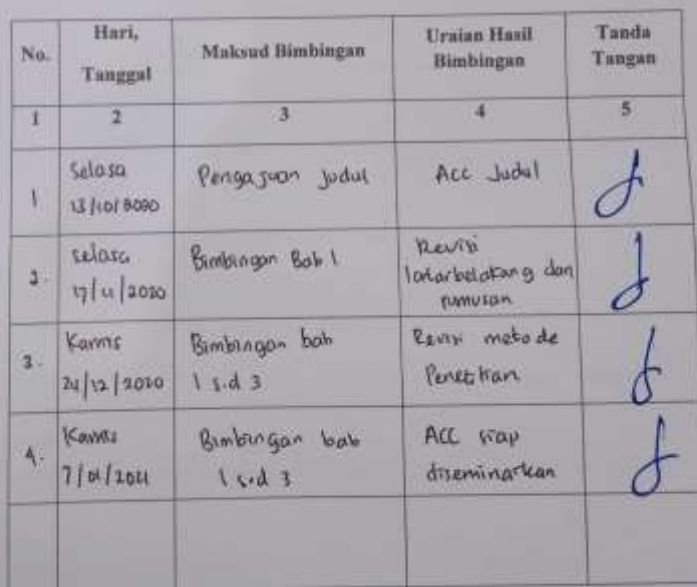 No.
Hari,
Tanggal
Maksud Bimbingan
Uraian Hasil
Bimbingan
Tanda
Tangan
1
2
3
4
5
1
Selasa
13/10/2020
Pengajuan Judul
Acc Judul
2.
Selasa
17/11/2020
Bimbingan Bab 1
Revisi
latarbelakang dan
rumusan
3.
Kamis
24/12/2020
Bimbingan bab
1 s.d 3
Revisi metode
Penelitian
4.
Kamis
7/01/2021
Bimbingan bab
1 s.d 3
ACC siap
diseminarkan